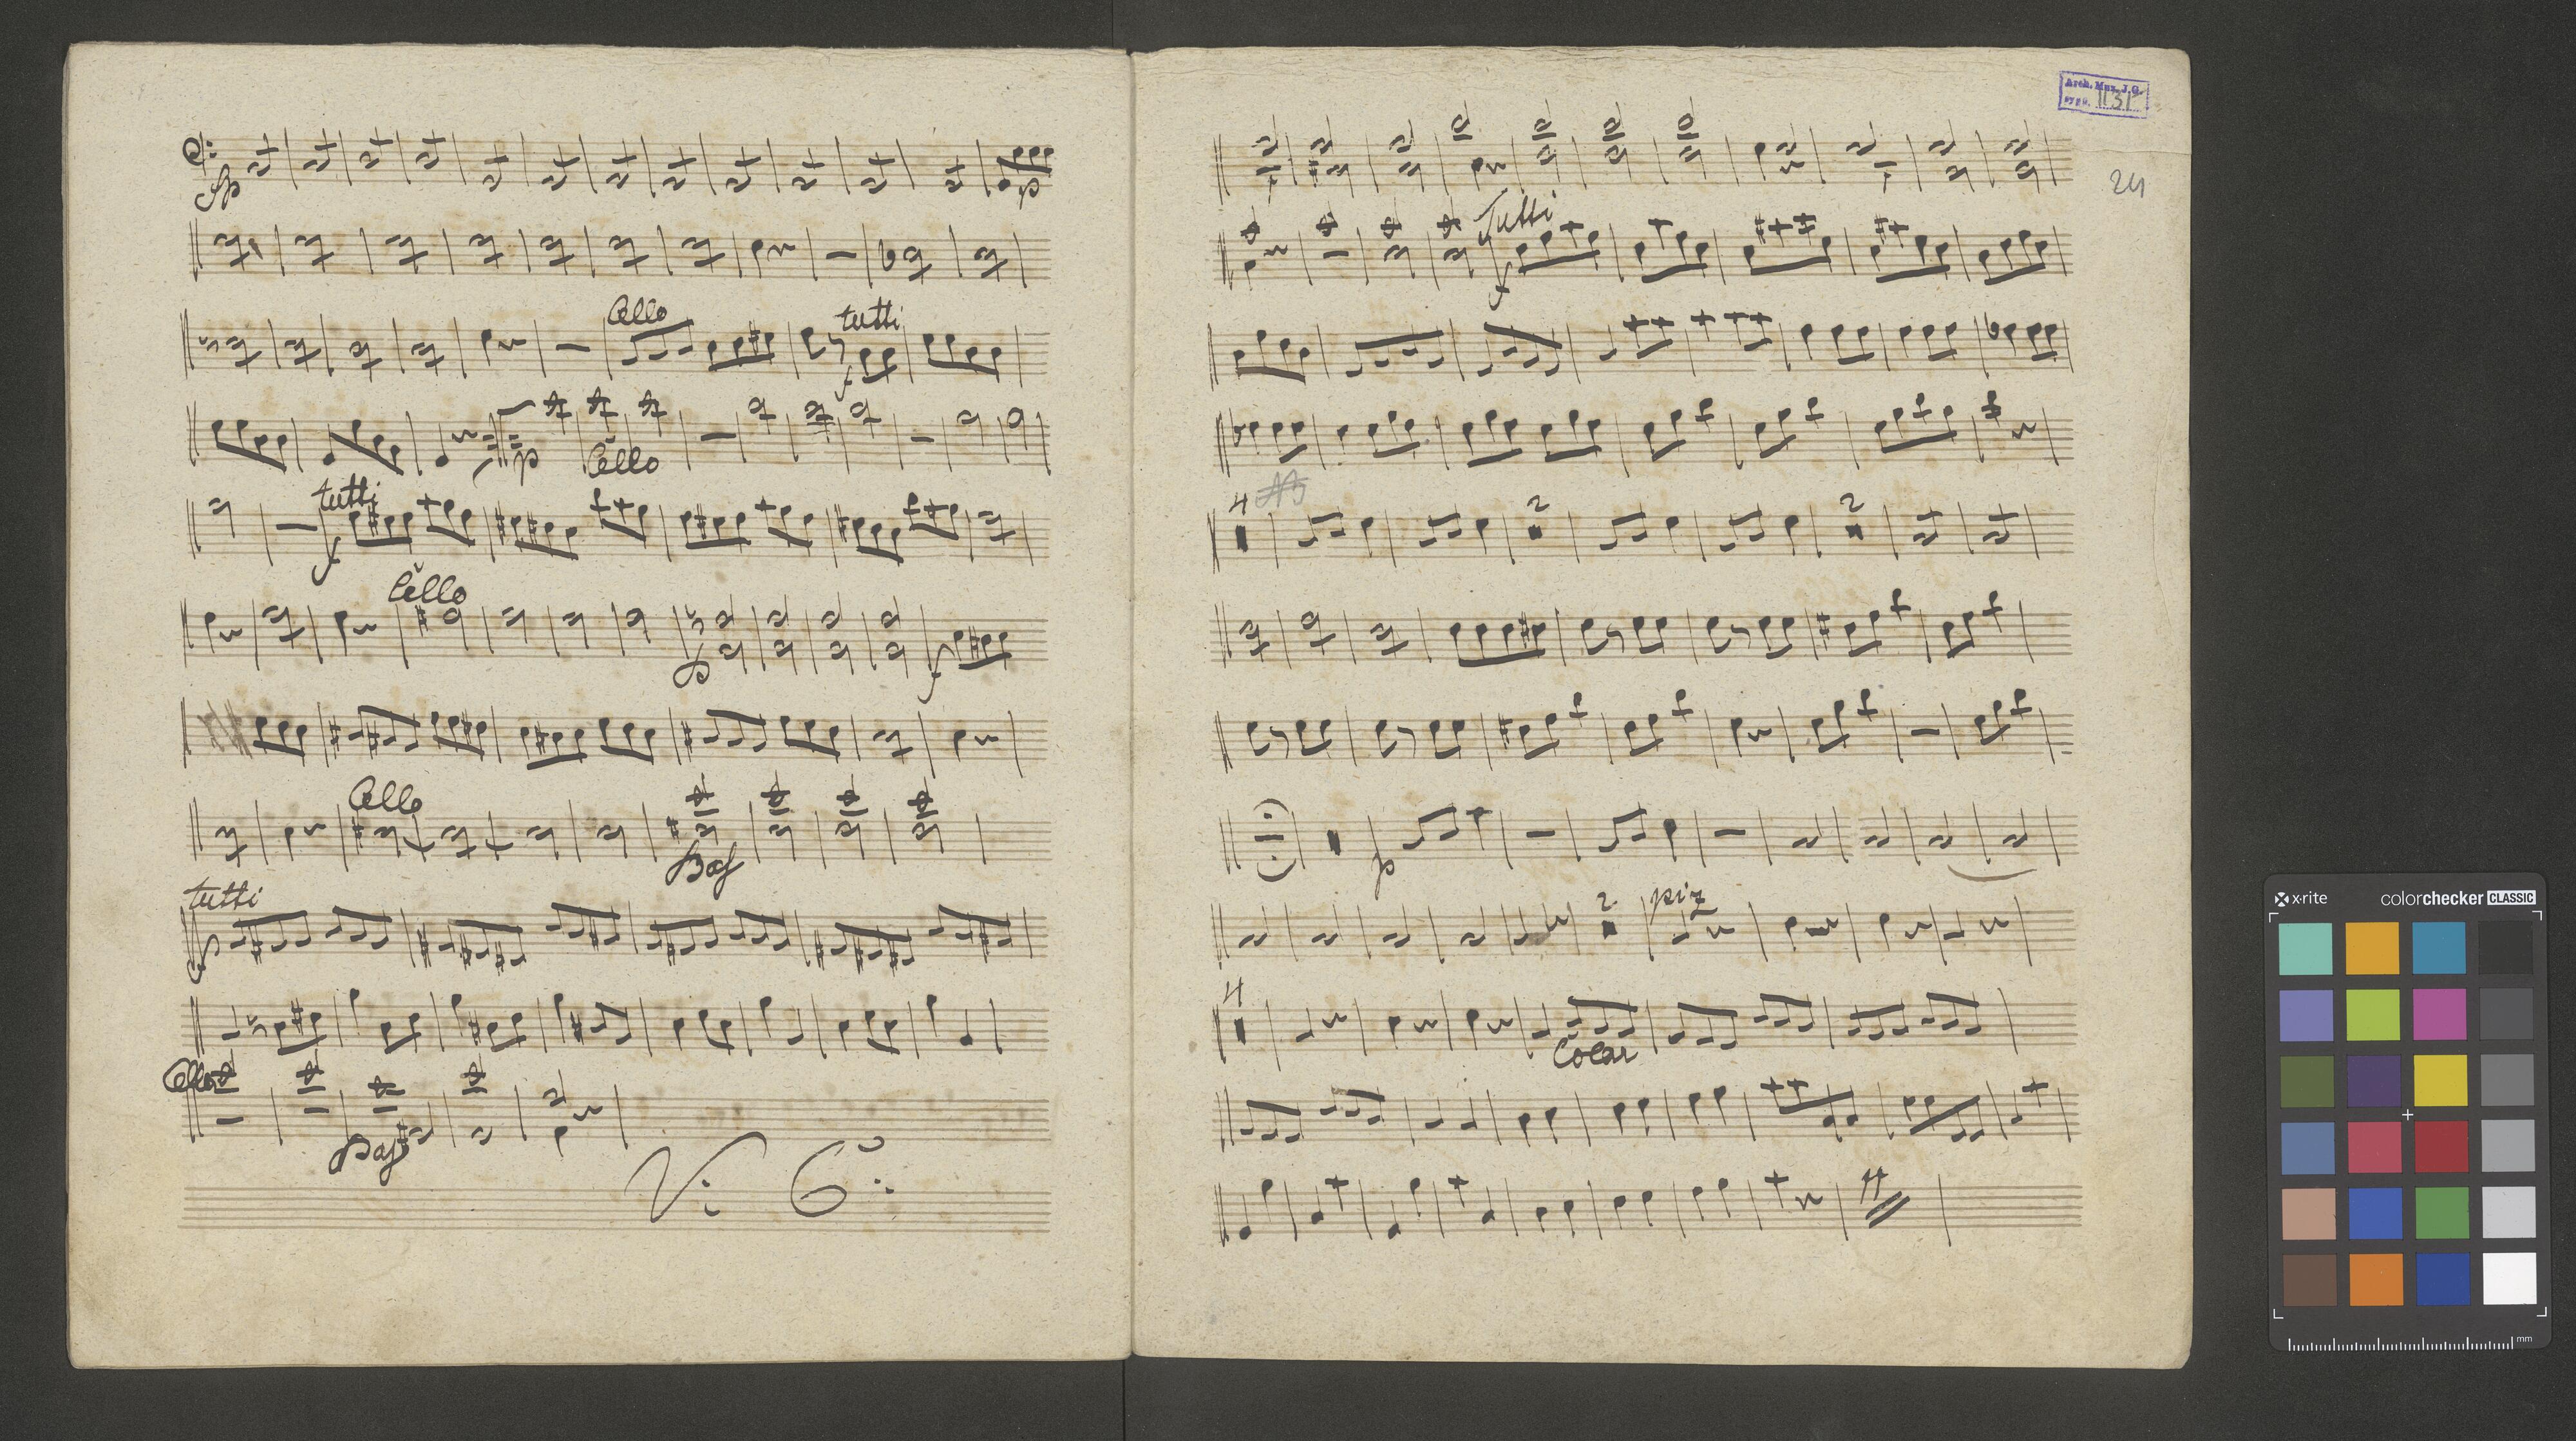 fp
p
Cello
tutti
f
p
Cello
tutti
f
Cello
p
f
Cello
Bass
tutti
f
Cello
Bass
V: S:
Arch. Muz. J.G.
1131
24
Tutti
f
4
2
2
p
2
piz
4
x-rite
colorchecker CLASSIC
mm